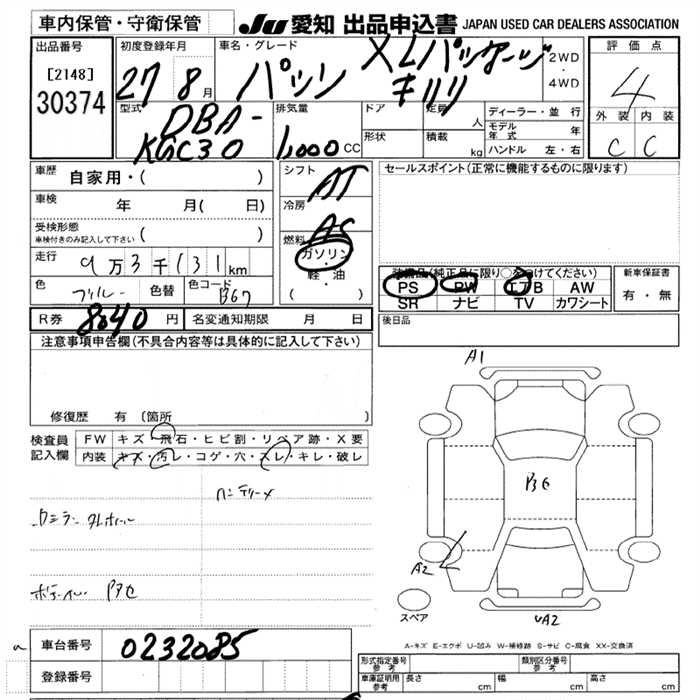 車内保管・守衛保管
JU 愛知 出品申込書 JAPAN USED CAR DEALERS ASSOCIATION
出品番号
[2148]
30374
初度登録年月
27 8月
車名・グレード
パッソ XLパッケージ
キリリ
2WD
・
4WD
評価点
4
外装 内装
C C
型式
DBA-
KGC30
排気量
1,000 CC
ドア
定員 人
形状
積載 kg
ディーラー・並行
モデル年式 年
ハンドル 左・右
車歴 自家用・( )
車検 年 月( 日)
受検形態
車検付きのみ記入して下さい ( )
走行 9万3千131km
色 ブルー 色替 色コード B67
シフト AT
冷房 AC
燃料 ガソリン
・
軽・油
( )
セールスポイント(正常に機能するものに限ります)
装備品(純正品に限り○をつけてください)
PS PW エアB AW
SR ナビ TV カワシート
新車保証書
有・無
R券 8040円 名変通知期限 月 日
後日品
注意事項申告欄(不具合内容等は具体的に記入して下さい)
修復歴 有(箇所
検査員
記入欄
FW キズ・飛石・ヒビ割・リペア跡・X要
内装 キズ・汚レ・コゲ・穴・スレ・キレ・破レ
ボディー P3C
A1
A2
UA2
スペア
A-キズ E-エクボ U-凹み W-補修跡 S-サビ C-腐食 XX-交換済
車台番号 0232085
登録番号
形式指定番号
参考
類別区分番号
参考
車庫証明用
参考
長さ cm 幅 cm 高さ cm